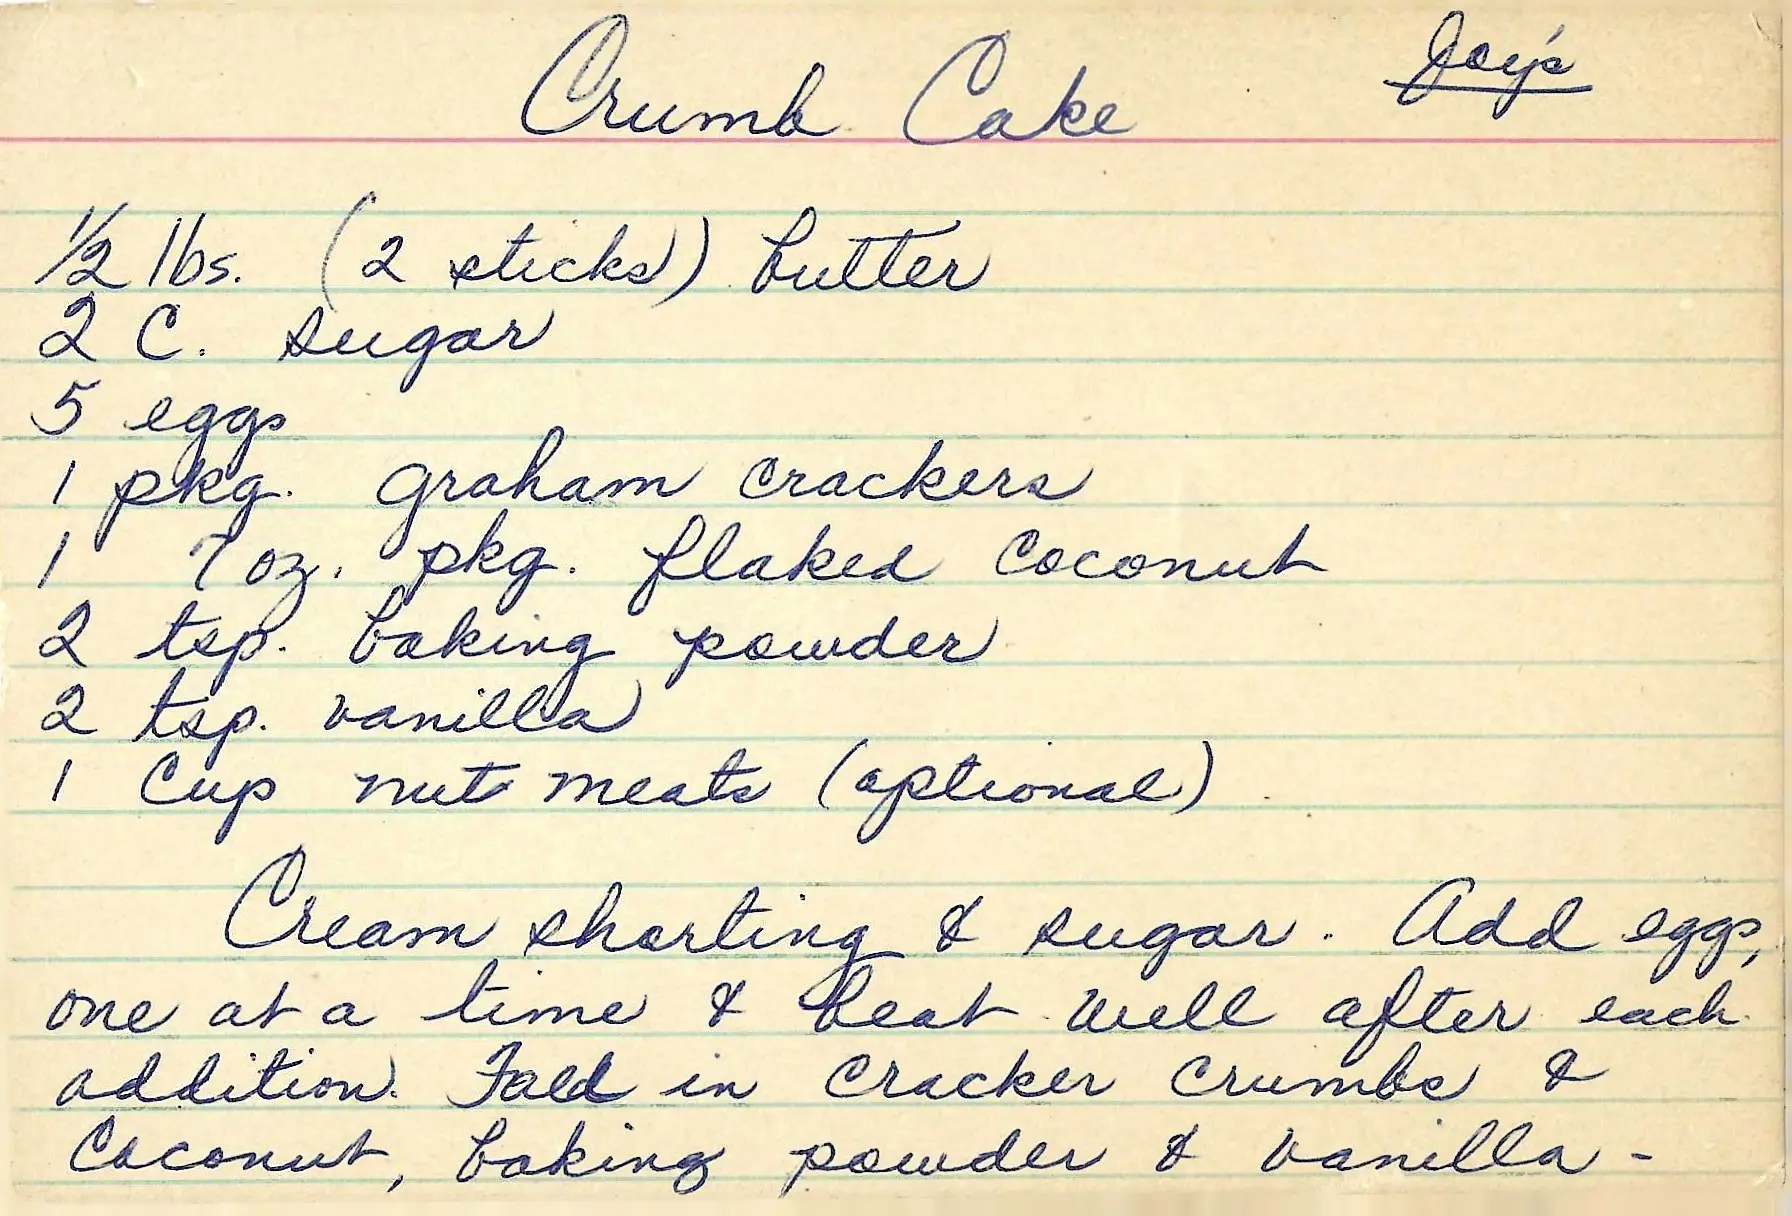 Crumb Cake Joy's
1/2 lbs. (2 sticks) butter
2 C. sugar
5 eggs
1 pkg. graham crackers
1 7 oz. pkg. flaked coconut
2 tsp. baking powder
2 tsp. vanilla
1 Cup nut meats (optional)
Cream shorting & sugar. Add eggs,
one at a time & beat well after each
addition. Fold in cracker crumbs &
Coconut, baking powder & vanilla -